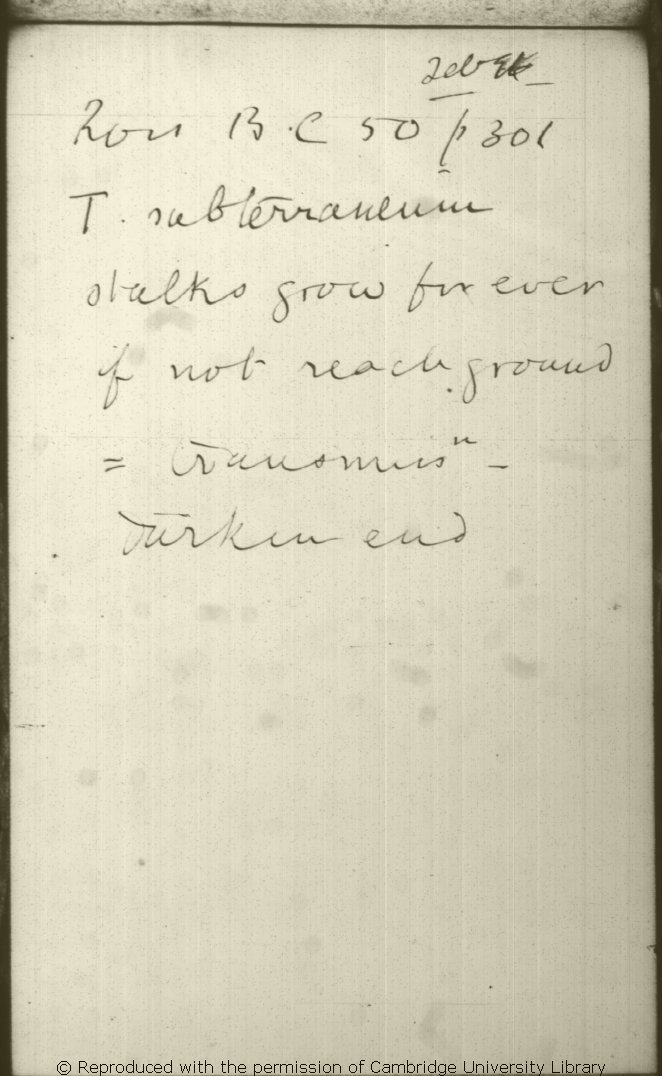 Ross B.C 50 p 301
T. subterraneum
stalks grow for ever
if not reach ground
= transmissⁿ -
end
© Reproduced with the permission of Cambridge University Library